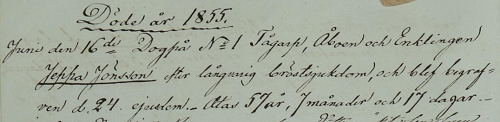 Döde år 1855.
Juni den 16de Dog på No 1 Tågarp, Åboen och Enklingen
Jeppa Jönsson efter långvarig bröstsjukdom, och blef begraf-
ven d. 24. ejusdem. - Ætas 57 år, 7 månader och 17 dagar. -